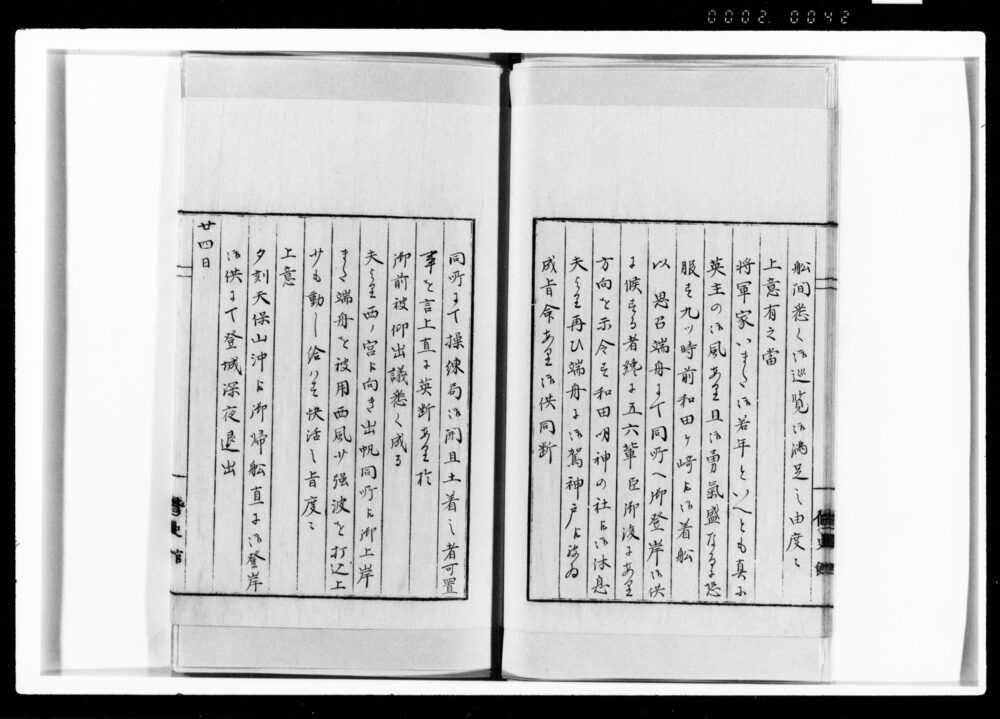 0002 0042
船間悉く御巡覧御満足之由度々
上意有之當
将軍家いまた御若年といへとも真に
英主の御風あり且御勇氣盛なるに恐
服す九ツ時前和田ヶ崎ゟ御着船
以 思召端舟にて同所へ御登岸御供
に候する者纔に五六輩臣御後にあり
方向を示令す和田明神の社ゟ御休息
夫より再ひ端舟に御駕神戸ゟ被為
成旨命あり御供同断
同所にて操練局御開且土着之者可置
事を言上直に英断あり於
御前被仰出議悉く成る
夫より西ノ宮ゟ向き出帆同所ゟ御上岸
また端舟を被用西風少強波を打込上
少も動し給はす快活之旨度々
上意
夕刻天保山沖ゟ御帰船直に御登岸
御供にて登城深夜退出
廿四日